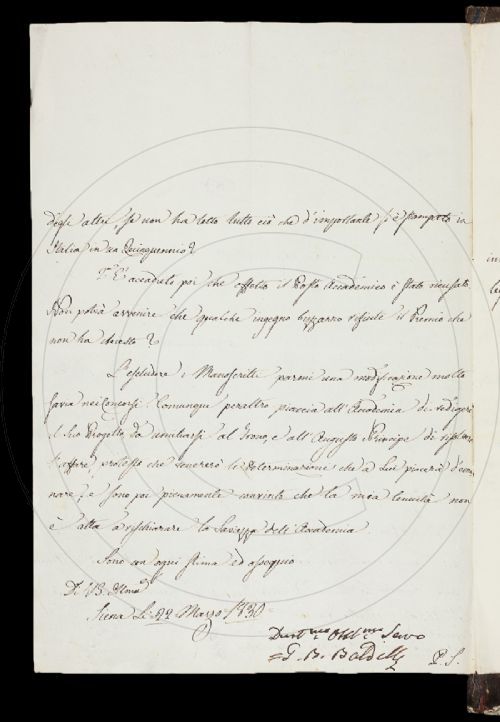 degli altri se non ha letto tutto ciò che d'importante si è stampato in
Italia in un Quinquennio?
È accaduto poi che offerto il Posto Accademico è stato ricusato
Non potrà avvenire che qualche ingegno bizzarro rifiuti il Premio che
non ha chiesto?
L'escludere i Manoscritti parmi una modificazione molto
savia nei Concorsi. Comunque peraltro piaccia all'Accademia di redigere
il suo Progetto da umiliarsi al Trono, e all'Augusto Principe di risolvere
l'affare, protesto che venererò le determinazione che a Lui piacerà d'ema
nare, e sono poi pienamente convinto che la mia lucerna non
è atta a rischiarare la Saviezza dell'Accademia.
Sono con ogni stima ed ossequio
Di VS. Illma
Siena Li 22 Marzo 1830
Devmo Obblmo Servo
G. B. Baldelli
P. S.